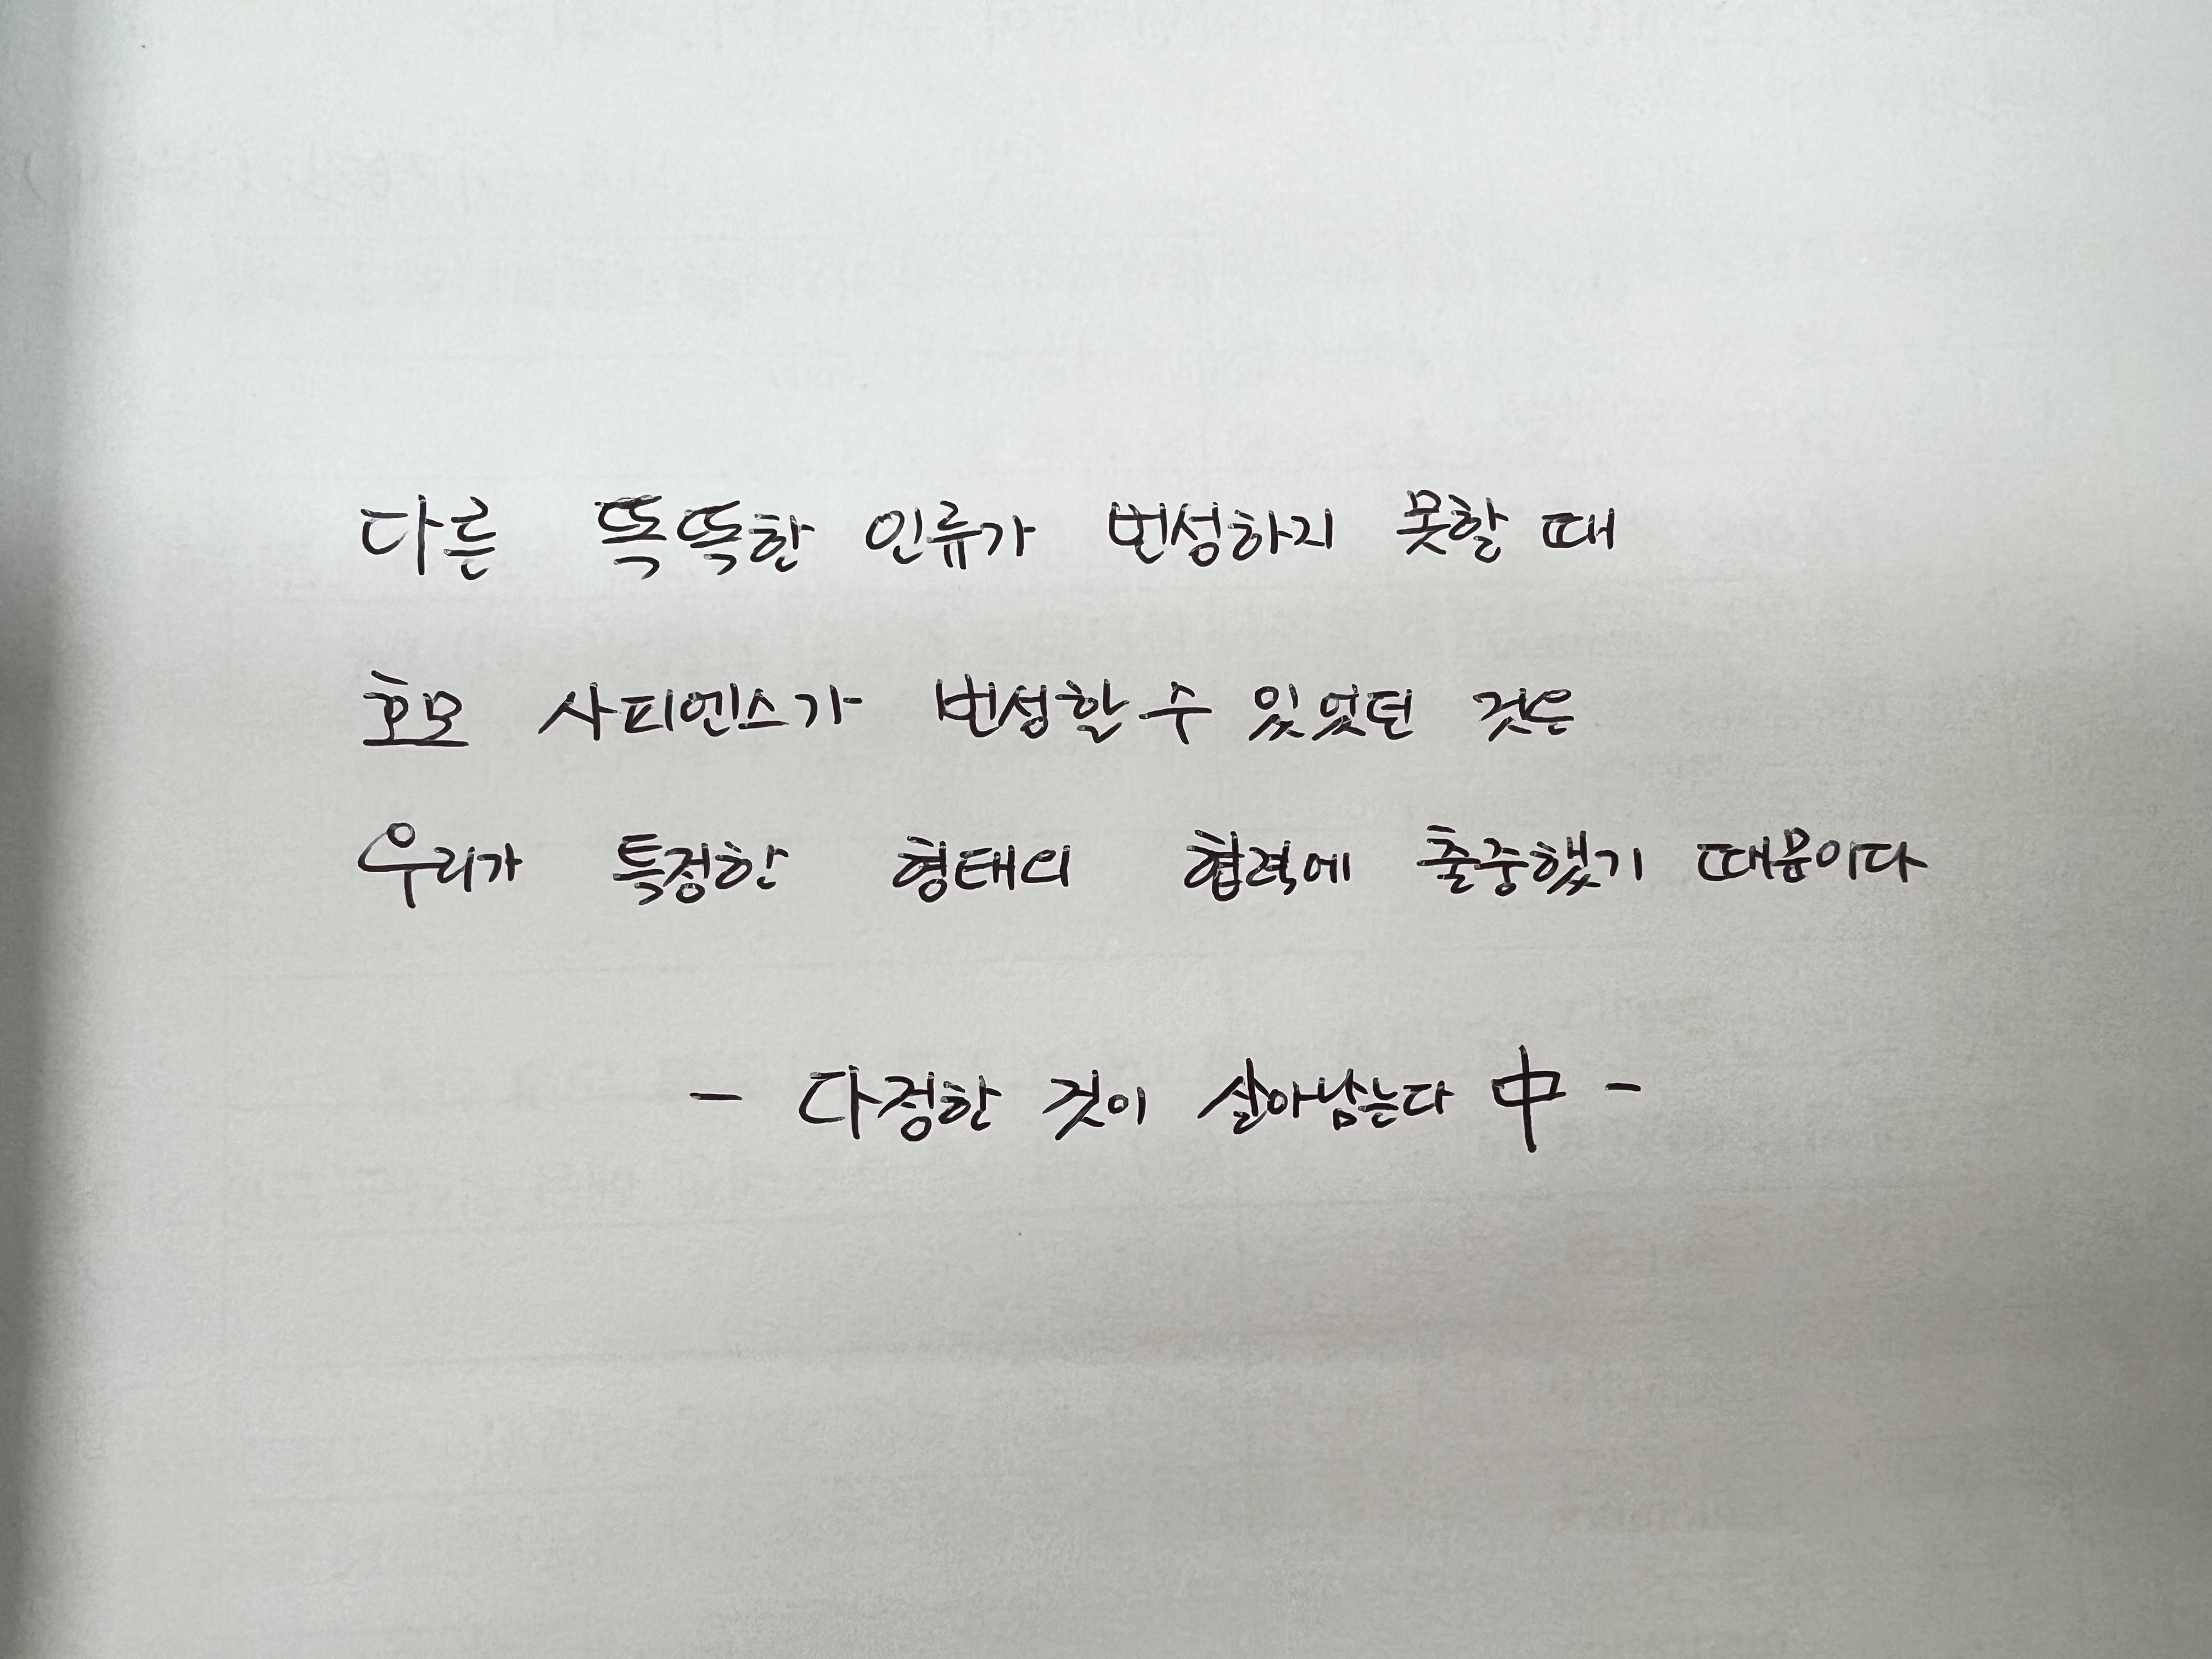 다른 똑똑한 인류가 번성하지 못할 때
호모 사피엔스가 번성할 수 있었던 것은
우리가 특정한 형태의 협력에 출중했기 때문이다
- 다정한 것이 살아남는다 中 -